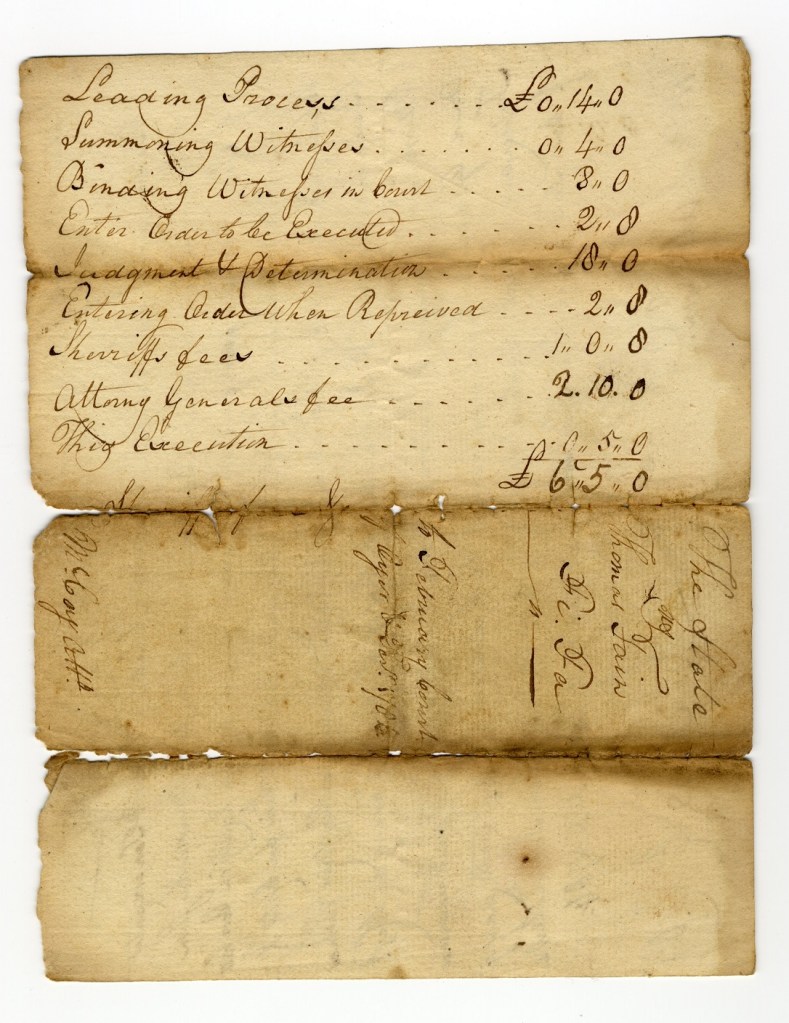 Leading Process . . . . . . . £ 0,, 14,, 0
Summoning Witnesses . . . . . . . 0,, 4,, 0
Binding Witnesses in Court . . . . . 8,, 0
Enter Order to be Executed . . . . . . 2,, 8
Judgment & Determination . . . . . . 18,, 0
Entering Order When Repreived . . . . 2,, 8
Sherriffs fees . . . . . . . . . . 1,, 0,, 8
Attorny Generals fee . . . . . . 2. 10. 0
This Execution . . . . . . . . . 0,, 5,, 0
£ 6,, 5,, 0
The State
vs
Thomas Fain
Fi. Fa
To February Court
of Oyer &
McCay Att